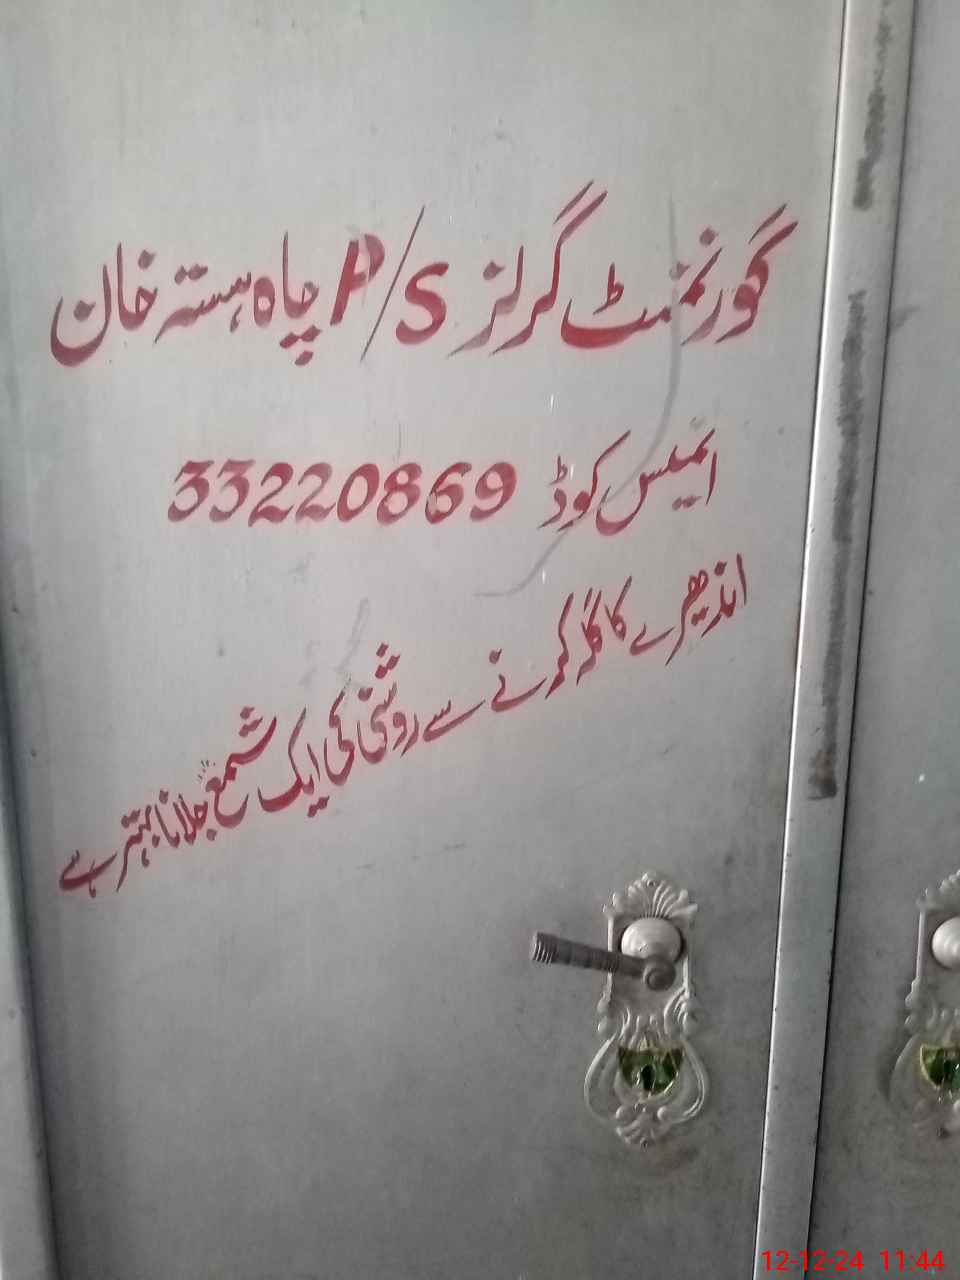 گورنمنٹ گرلز P/S چاہ ہستہ خان
ایمیس کوڈ 33220869
اندھیرے کا گلہ کرنے سے روشنی کی ایک شمع جلانا بہتر ہے
12-12-24 11:44